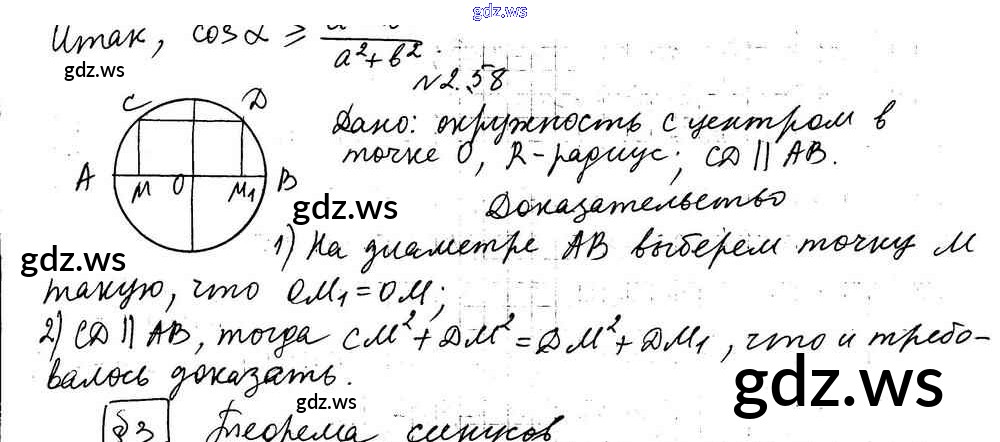 gdz.ws
Итак, cos α ≥
a²+b²
gdz.ws
№2.58
C D
A M O M₁ B
Дано: окружность с центром в
точке O, R-радиус; CD || AB.
Доказательство
gdz.ws
1) На диаметре AB выберем точку M
gdz.ws
такую, что OM₁=OM;
2) CD || AB, тогда CM²+DM²=DM²+DM₁, что и требо-
валось доказать.
gdz.ws
gdz.ws
§3 Теорема синусов